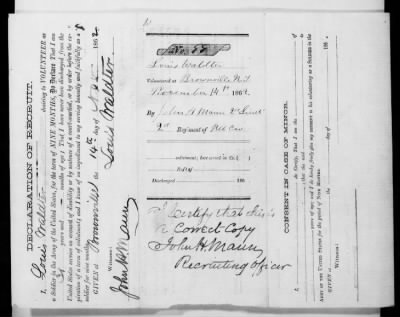 DECLARATION OF RECRUIT.
I, Louis Waldter desiring to VOLUNTEER as
a Soldier in the Army of the United States, for the term of NINE MONTHS, Do Declare, That I am
years and months of age; That I have never been discharged from the
United States service on account of disability or by sentence of a court-martial, or by order before the
expiration of a term of enlistment; and I know of no impediment to my serving honestly and faithfully as a
soldier for nine months.
GIVEN at Brownville 14th day of 1862
Louis Waldter
Witness:
John H. Maun
No. 58
Louis Waldter
Volunteered at Brownville N.T.
November 14th 1862
By John H Maun 2d Lieut
2d Regiment of Neb Cav.
enlistment; last served in Co. ( )
Reg't of
Discharged 186
I Certify that this is
a Correct Copy
John H. Maun
Recruiting Officer
CONSENT IN CASE OF MINOR.
I, Do Certify, That I am the
of
years of age; and I do hereby freely give my consent to his volunteering as a SOLDIER in the
ARMY OF THE UNITED STATES for the period of NINE MONTHS.
GIVEN at
Witness: